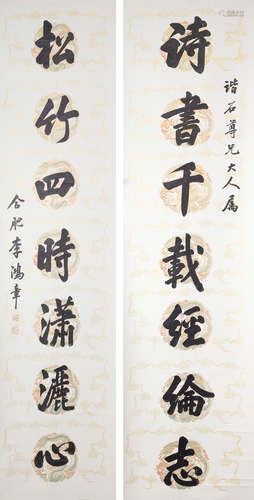 詩書千載經綸志
諧石尊兄大人屬
松竹四時瀟灑心
合肥李鴻章